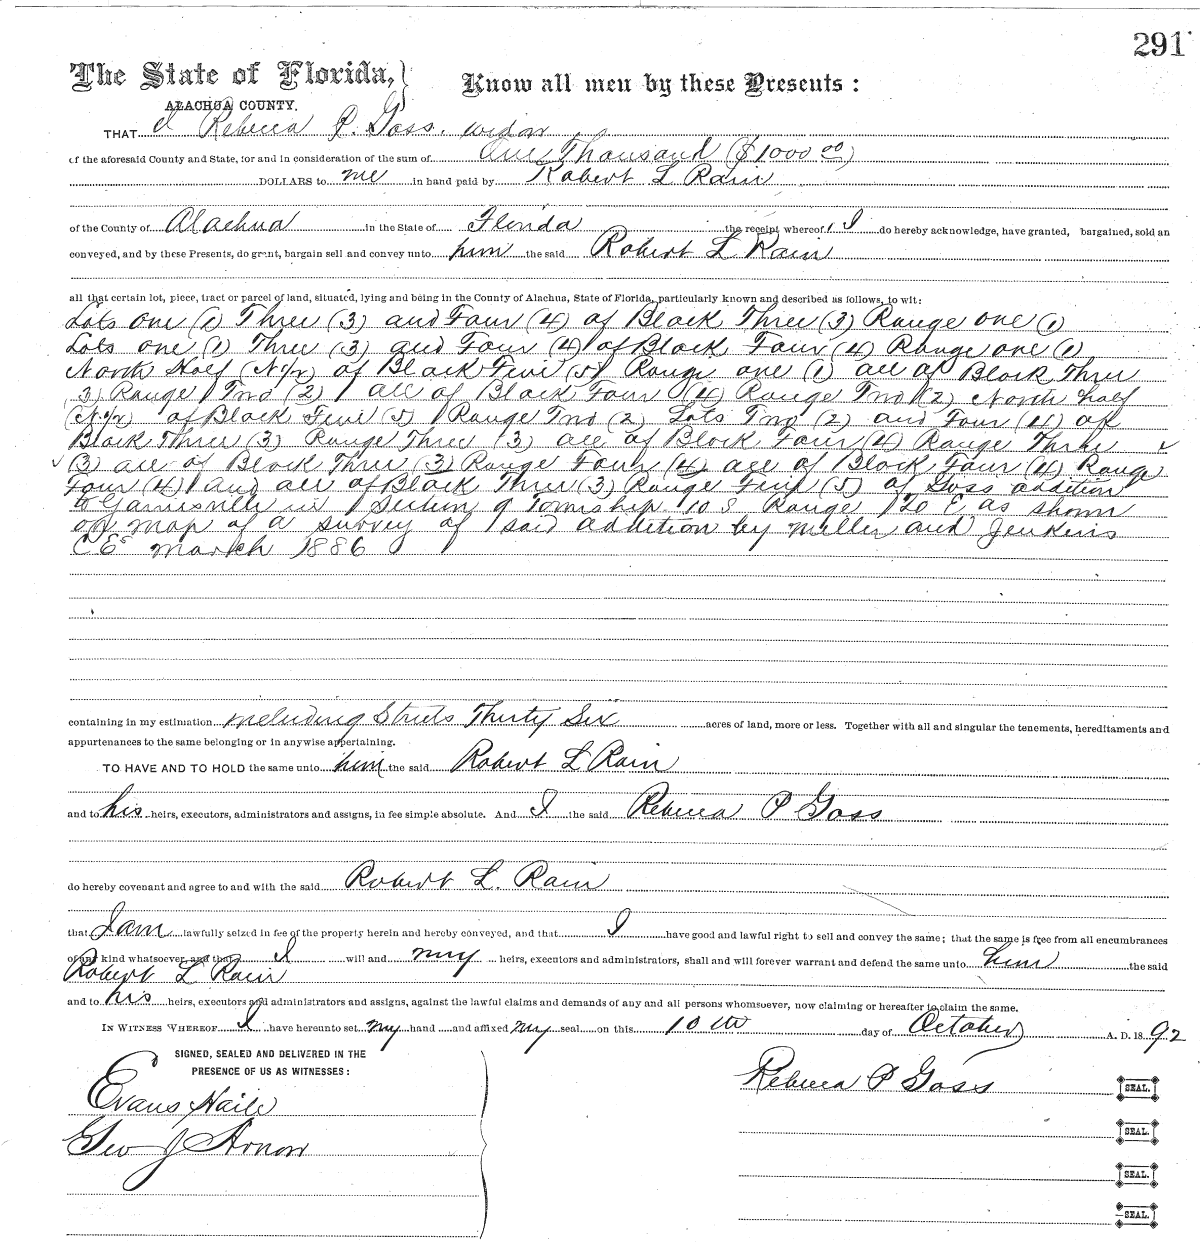 291
The State of Florida, } Know all men by these Presents:
ALACHUA COUNTY.
THAT I Rebecca P. Goss. widow
of the aforesaid County and State, for and in consideration of the sum of One Thousand ($1000 00)
DOLLARS to me in hand paid by Robert L Rain
of the County of Alachua in the State of Florida the receipt whereof, I do hereby acknowledge, have granted, bargained, sold an
conveyed, and by these Presents, do grant, bargain sell and convey unto him the said Robert L Rain
all that certain lot, piece, tract or parcel of land, situated, lying and being in the County of Alachua, State of Florida, particularly known and described as follows, to wit:
Lots one (1) Three (3) and Four (4) of Block Three (3) Range one (1)
Lots one (1) Three (3) and Four (4) of Block Four (4) Range one (1)
North Half (N/2) of Block Five (5) Range one (1) all of Block Three
3) Range Two (2) all of Block Four (4) Range Two (2) North half
(N/2) of Block Five (5) Range Two (2) Lots Two (2) and Four (4) of
Block Three (3) Range Three (3) all of Block Four (4) Range Three
(3) all of Block Three (3) Range Four (4) all of Block Four (4) Range
Four (4) and all of Block Three (3) Range Five (5) of Goss addition
to Gainesville in Section 9 Township 10 S Range 20 E as shown
on map of a survey of said addition by Miller and Jenkins
C.E. March 1886
containing in my estimation including Streets Thirty Six acres of land, more or less. Together with all and singular the tenements, hereditaments and
appurtenances to the same belonging or in anywise appertaining.
TO HAVE AND TO HOLD the same unto him the said Robert L Rain
and to his heirs, executors, administrators and assigns, in fee simple absolute. And I the said Rebecca P Goss
do hereby covenant and agree to and with the said Robert L. Rain
that I am lawfully seized in fee of the property herein and hereby conveyed, and that I have good and lawful right to sell and convey the same; that the same is free from all encumbrances
of any kind whatsoever, and that I will and my heirs, executors and administrators, shall and will forever warrant and defend the same unto him the said
Robert L Rain
and to his heirs, executors and administrators and assigns, against the lawful claims and demands of any and all persons whomsoever, now claiming or hereafter to claim the same.
IN WITNESS WHEREOF I have hereunto set my hand and affixed my seal on this 10th day of October A. D. 1892
SIGNED, SEALED AND DELIVERED IN THE
PRESENCE OF US AS WITNESSES:
Rebecca P Goss SEAL.
Evans Haile
SEAL.
Geo J Arnow
SEAL.
SEAL.